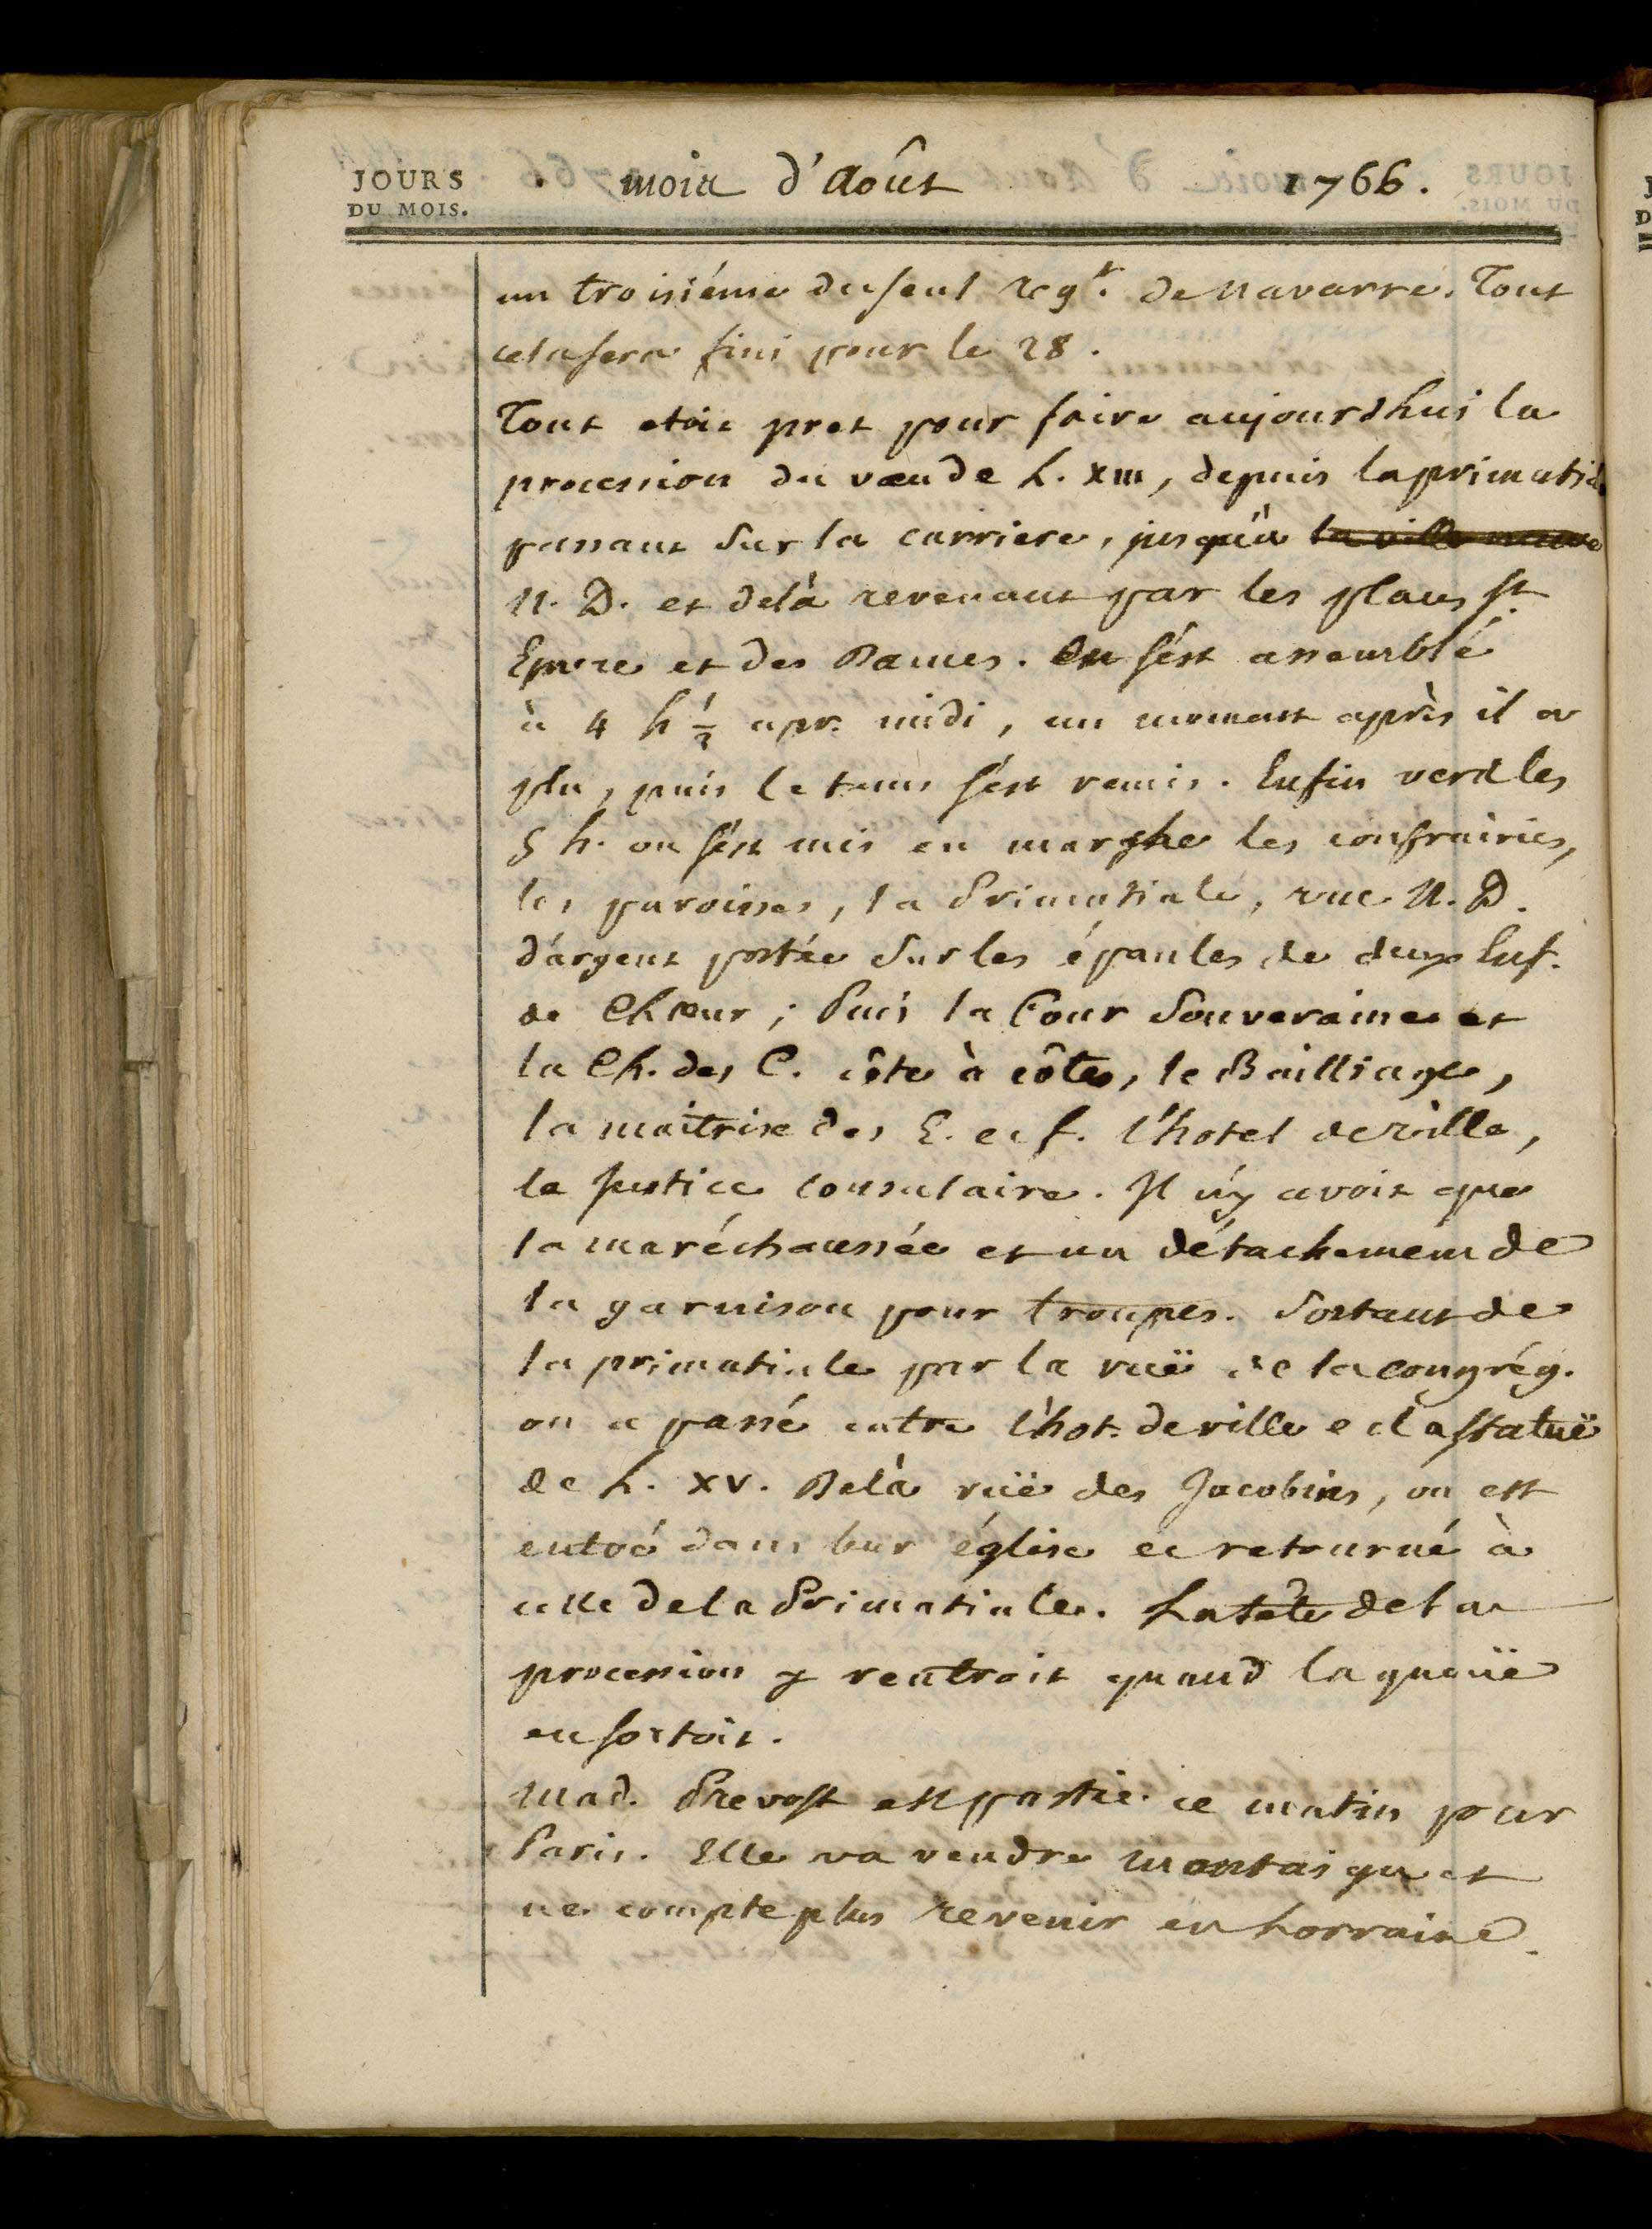 JOURS
DU MOIS.
mois d'Août 1766.
un troisiéme du seul regt. de navarre. Tout
cela sera fini pour le 28.
Tout etoit pret pour faire aujourdhui la
procession du vœu de L. XIII, depuis la primatiale
passant Sur la carriere, jusqu'à la ville neuve
N. D. et delà revenant par les places St.
Epvre et des Dames. On s'est assemblé
à 4 h ½ apr. midi, un moment après il a
plu, puis le tems s'est remis. Enfin vers les
5 h. on s'est mis en marche les confrairies,
les paroisses, la Primatiale, une N. D.
d'argent portée Sur les épaules de deux Enf.
de Chœur; Puis la Cour Souveraine et
la Ch. des C. côte à côte, le Bailliage,
la maîtrise des E. et f. l'hotel de ville,
la Justice Consulaire. Il n'y avoit que
la maréchaussée et un détachement de
la garnison pour troupes. Sortant de
la primatiale par la ruë de la congrég.
on a passé entre l'hot. de ville et la statuë
de L. XV. Delà ruë des Jacobins, on est
entré dans leur église et retourné à
celle de la Primatiale. La tête de la
procession y rentroit quand la queuë
en sortoit.
Mad. Prevost est partie ce matin pour
Paris. Elle va vendre Montaigu et
ne compte plus revenir en Lorraine.